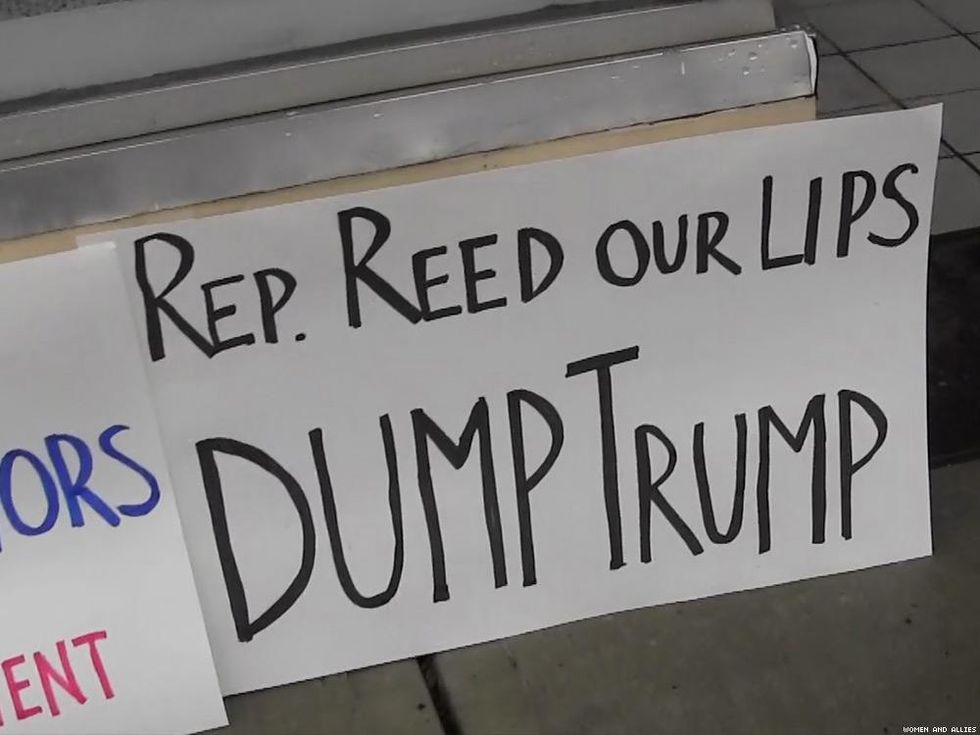 REP. REED OUR LIPS
DUMP TRUMP
ORS
ENT
WOMEN AND ALLIES